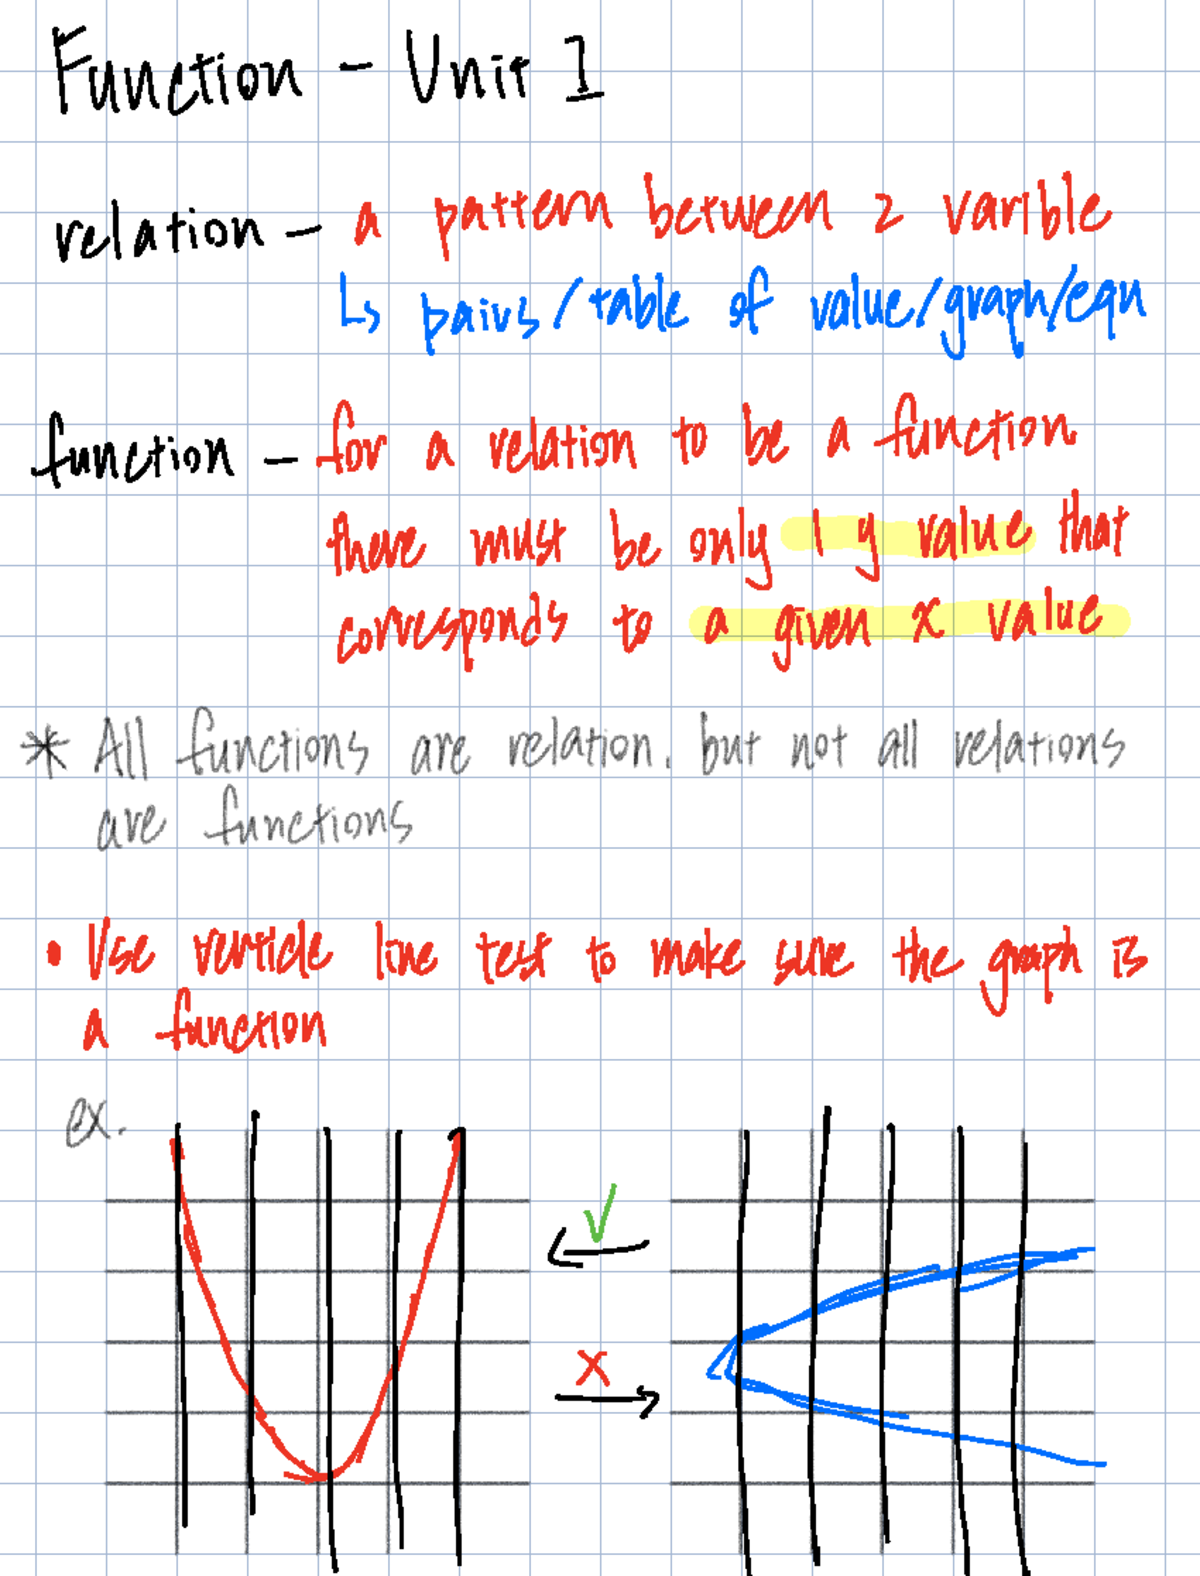 Function - Unit 1
relation - a pattern between 2 varible
↳ pairs/table of value/graph/equ
function - for a relation to be a function
there must be only 1 y value that
corresponds to a given x value
* All functions are relation. but not all relations
are functions
• Use verticle line test to make sure the graph is
a function
ex.
✓
←
X
→